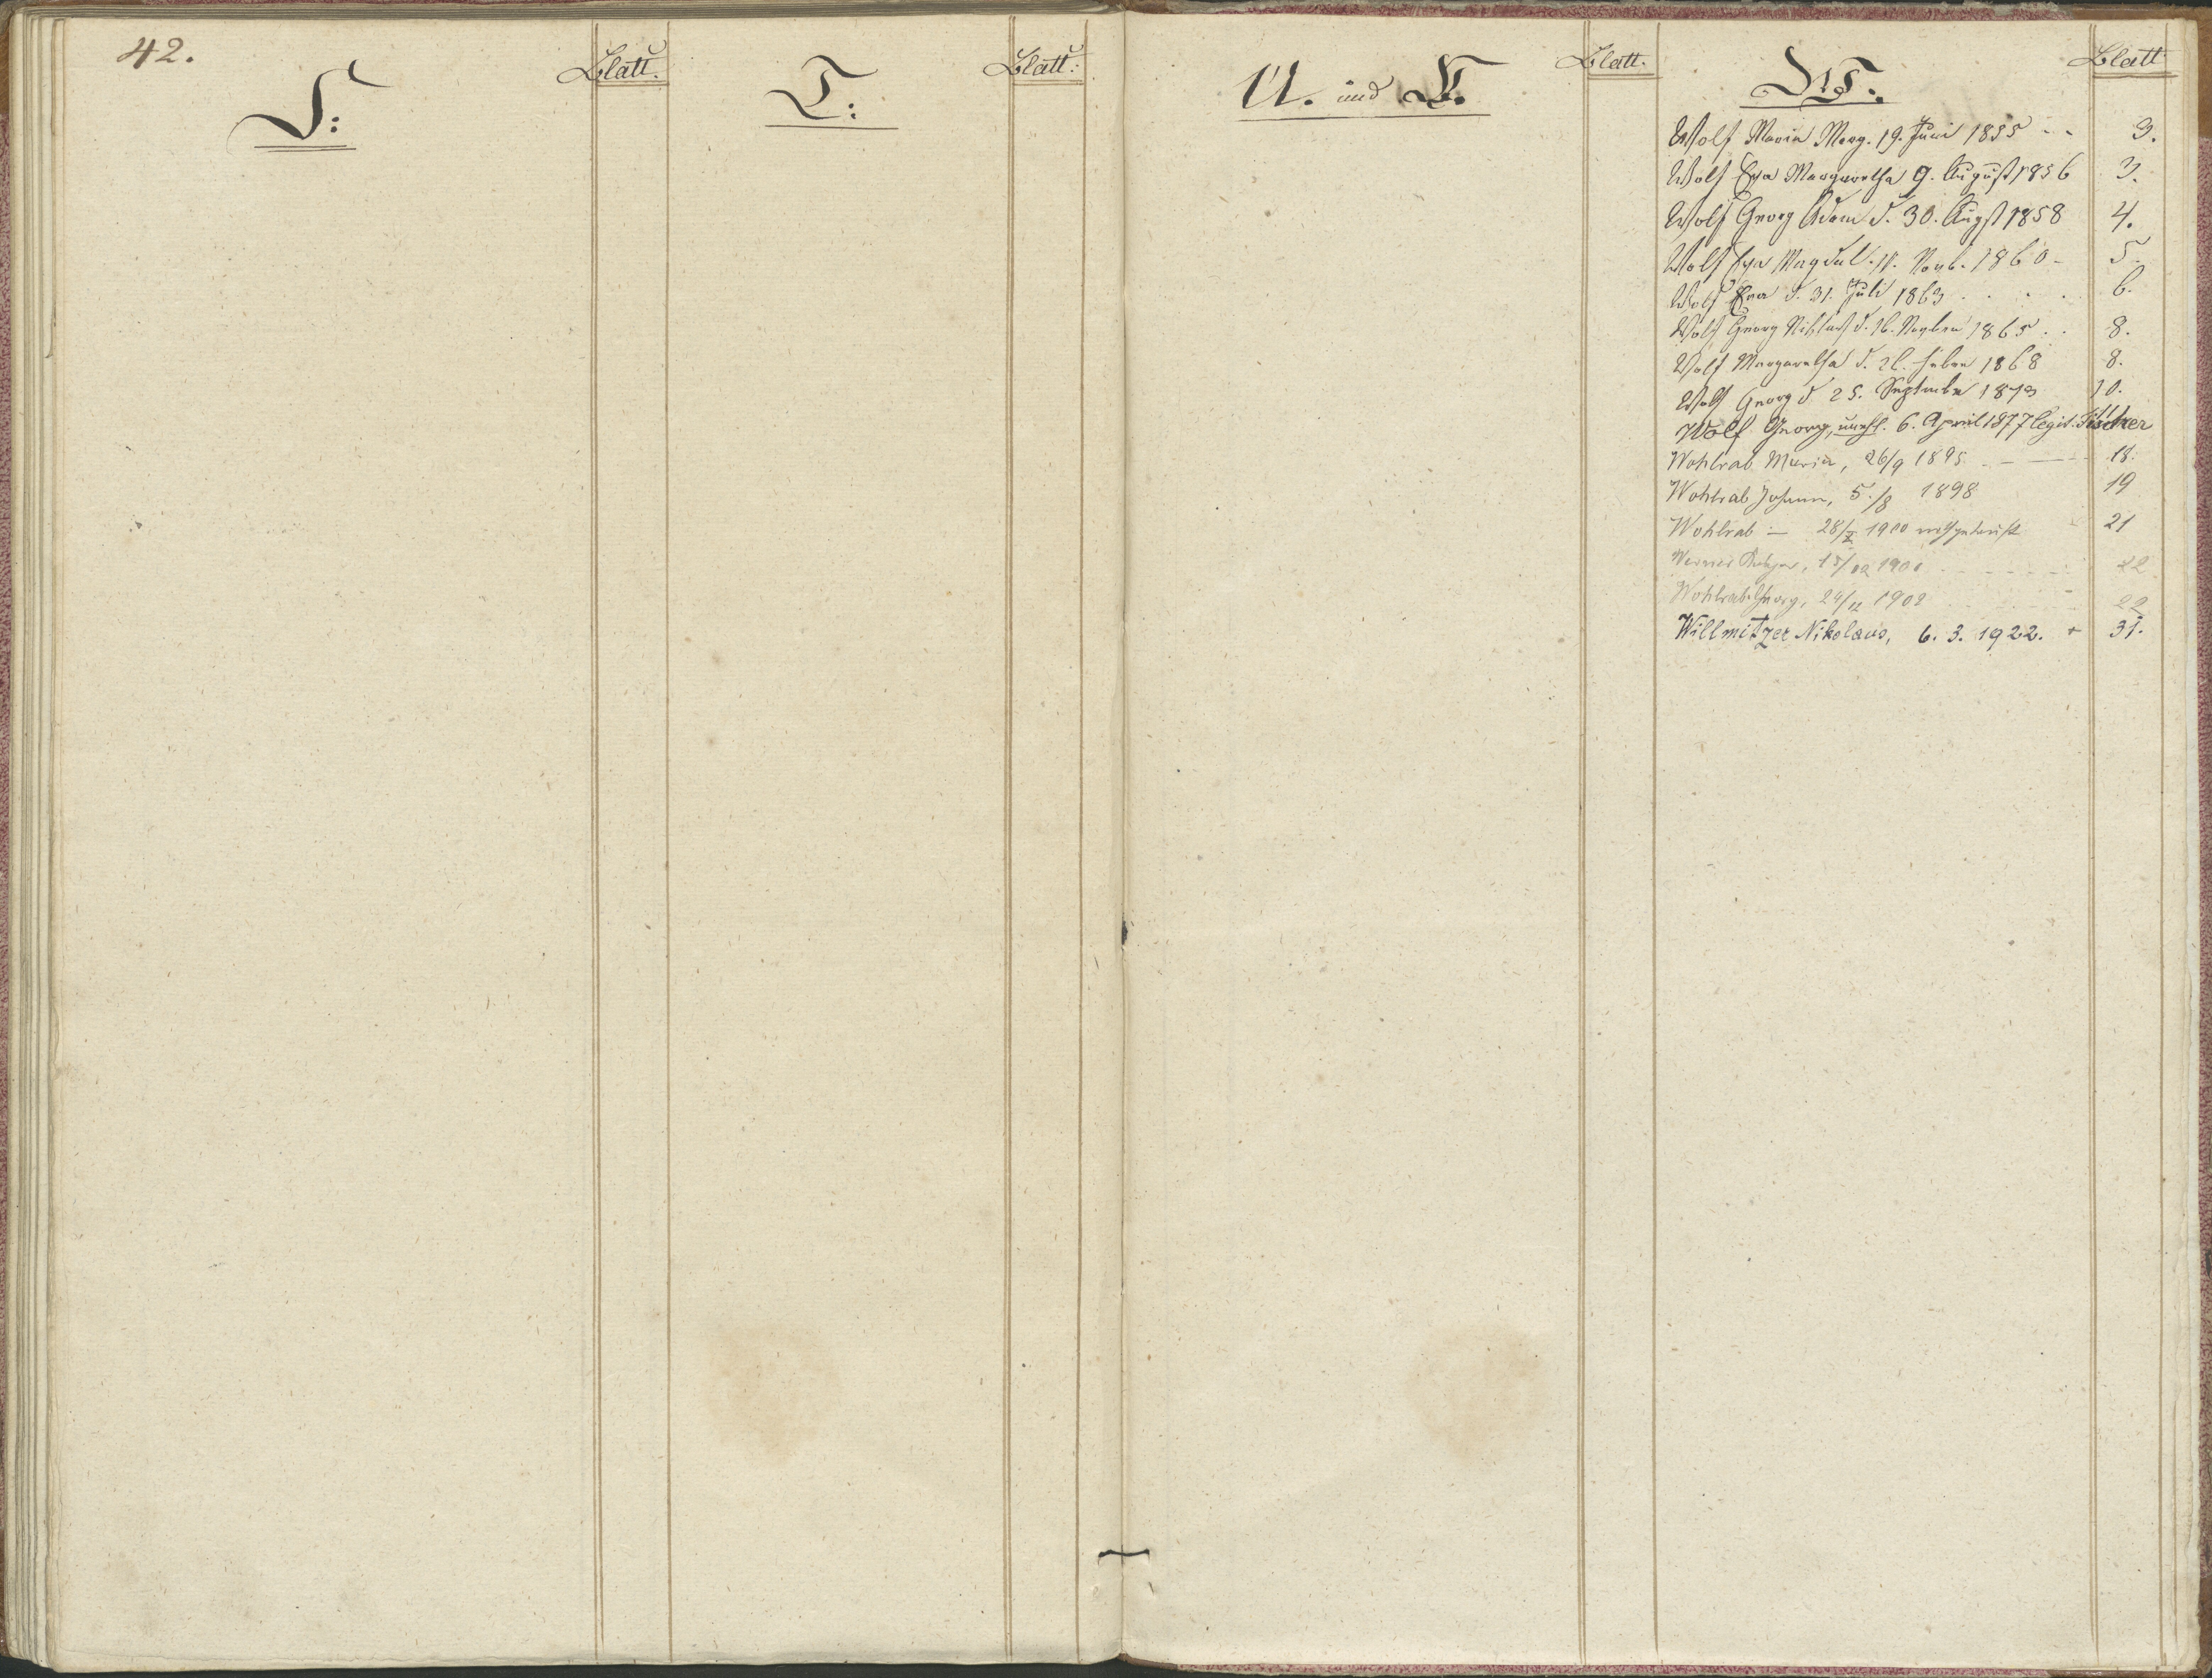 42.
S:
Blatt.
T:
Blatt:
U. und V.
Blatt.
W.
Blatt
Wolf Maria Marg. 19. Juni 1855 - - 3.
Wolf Eva Margaretha 9. August 1856 3.
Wolf Georg Adam d. 30. Augst 1858 4.
Wolf Eva Magdal. 11. Novb. 1860 - 5.
Wolf Eva d. 31. Juli 1863 . . . . 6.
Wolf Georg Niklas d. 16. 1865 . . 8.
Wolf Margaretha d. 1868 8.
Wolf Georg d 25. September 1873 10.
Wolf Georg, unehl. 6. April 1877 legit. Tischer
Wohlrab Maria, 26/9 1895 - — 18.
Wohlrab Johann, 5./8 1898 19
Wohlrab — 28/X 1900 nothgetauft 21
Werner 15/ 22
Wohlrab Georg, 24/12 1902 22
Willmitzer Nikolaus, 6. 3. 1922. + 31.